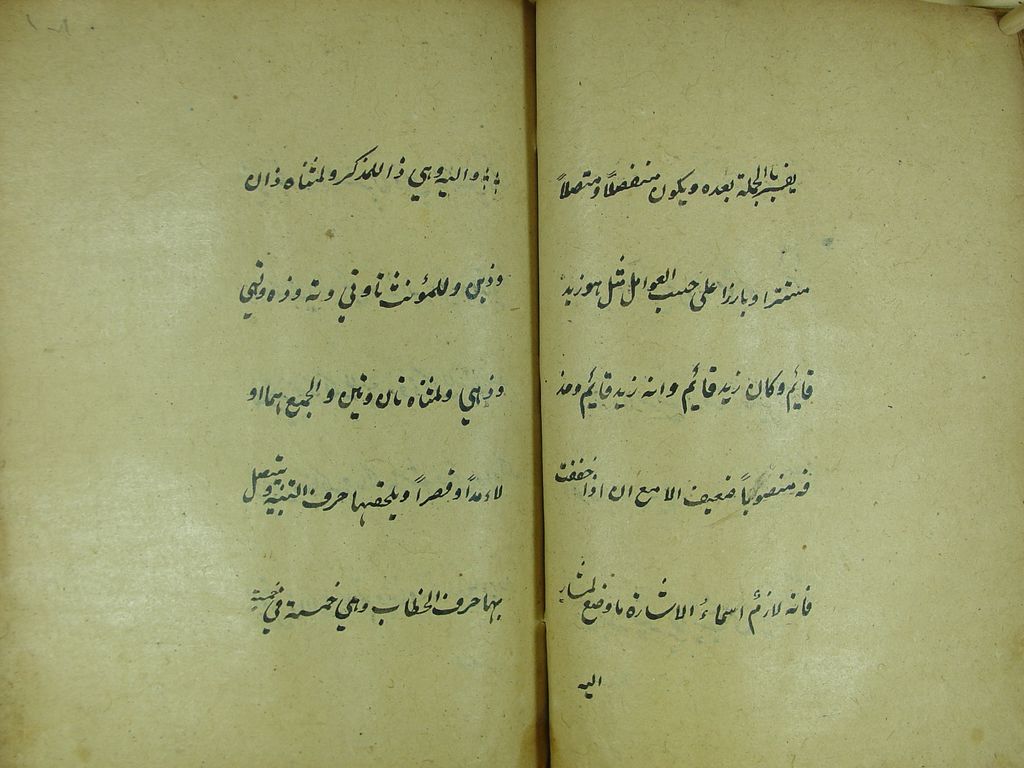 يفسر بالجملة بعده ويكون منفصلاً ومتصلاً
مستترا وبارزا على حسب العوامل مثل هو زيد
قائم وكان زيد قائم وانه زيد قائم وحذ
فه منصوباً ضعيف الا مع ان اذا خففت
فانه لازم اسماء الاشارة ما وضع لمشار
اليه
اليه وهي ذا للمذكر ولمثناه ذان
وذين وللمؤنث تا وتي وته وذه وتهي
وذهي ولمثناه تان وتين والجمعهما او
لاء مداً وقصراً ويلحقها حرف التنبيه ويتصل
بها حرف الخطاب وهي خمسة في خمسة